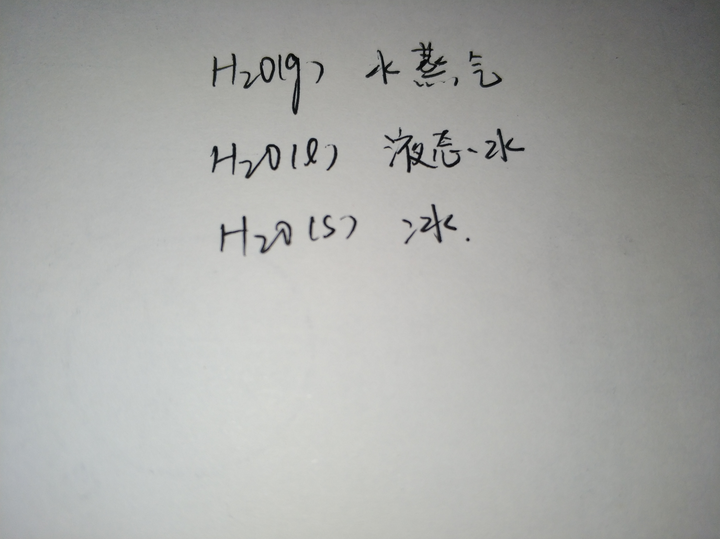 H2O(g) 水蒸气
H2O(l) 液态水
H2O(s) 冰.